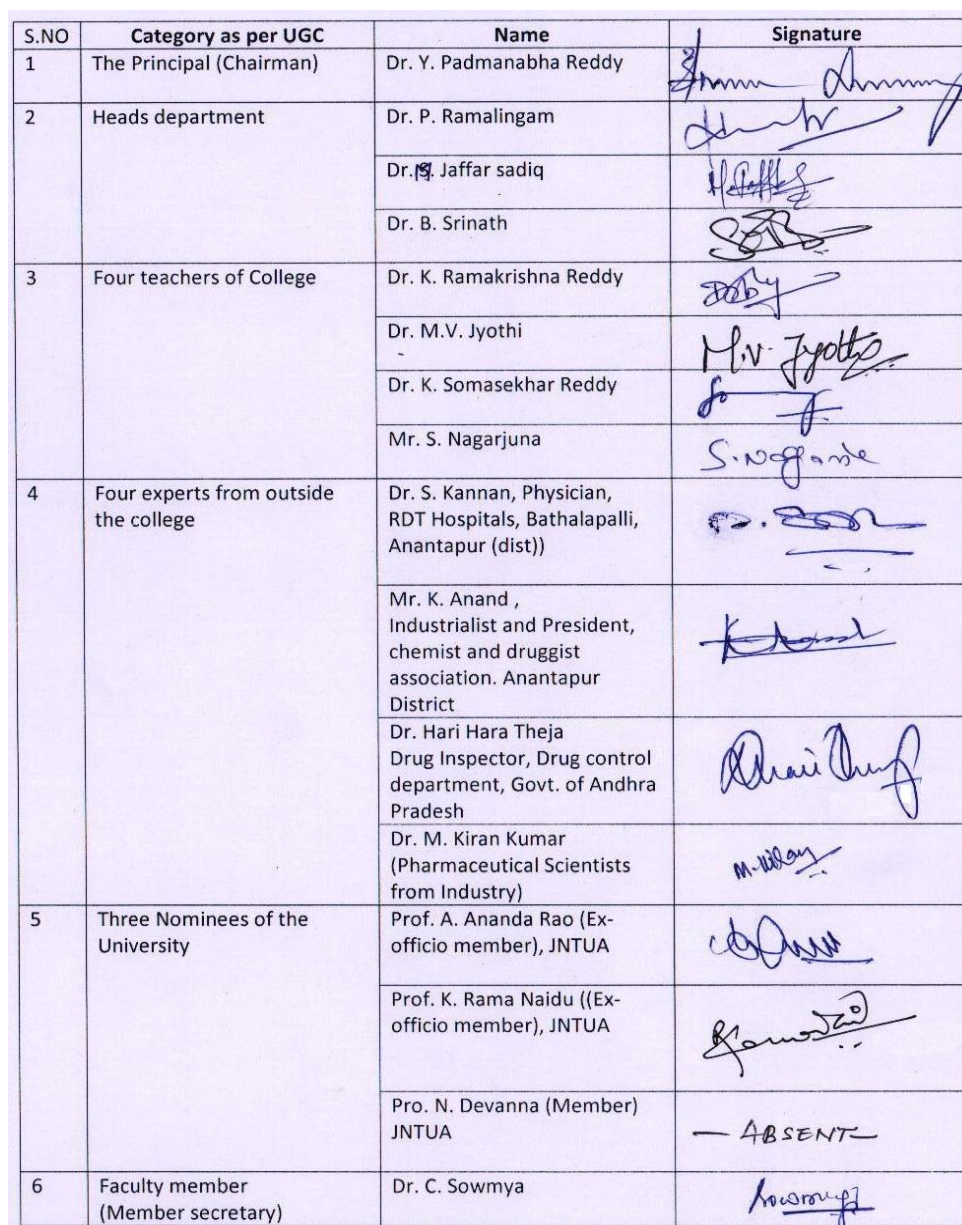 S.NO Category as per UGC Name Signature
1 The Principal (Chairman) Dr. Y. Padmanabha Reddy
2 Heads department Dr. P. Ramalingam
Dr. Jaffar sadiq
Dr. B. Srinath
3 Four teachers of College Dr. K. Ramakrishna Reddy
Dr. M.V. Jyothi M.V. Jyothi
Dr. K. Somasekhar Reddy
Mr. S. Nagarjuna
4 Four experts from outside Dr. S. Kannan, Physician,
the college RDT Hospitals, Bathalapalli,
Anantapur (dist))
Mr. K. Anand ,
Industrialist and President,
chemist and druggist
association. Anantapur
District
Dr. Hari Hara Theja
Drug Inspector, Drug control
department, Govt. of Andhra
Pradesh
Dr. M. Kiran Kumar
(Pharmaceutical Scientists
from Industry)
5 Three Nominees of the Prof. A. Ananda Rao (Ex-
University officio member), JNTUA
Prof. K. Rama Naidu ((Ex-
officio member), JNTUA
Pro. N. Devanna (Member)
JNTUA — ABSENT —
6 Faculty member Dr. C. Sowmya
(Member secretary)